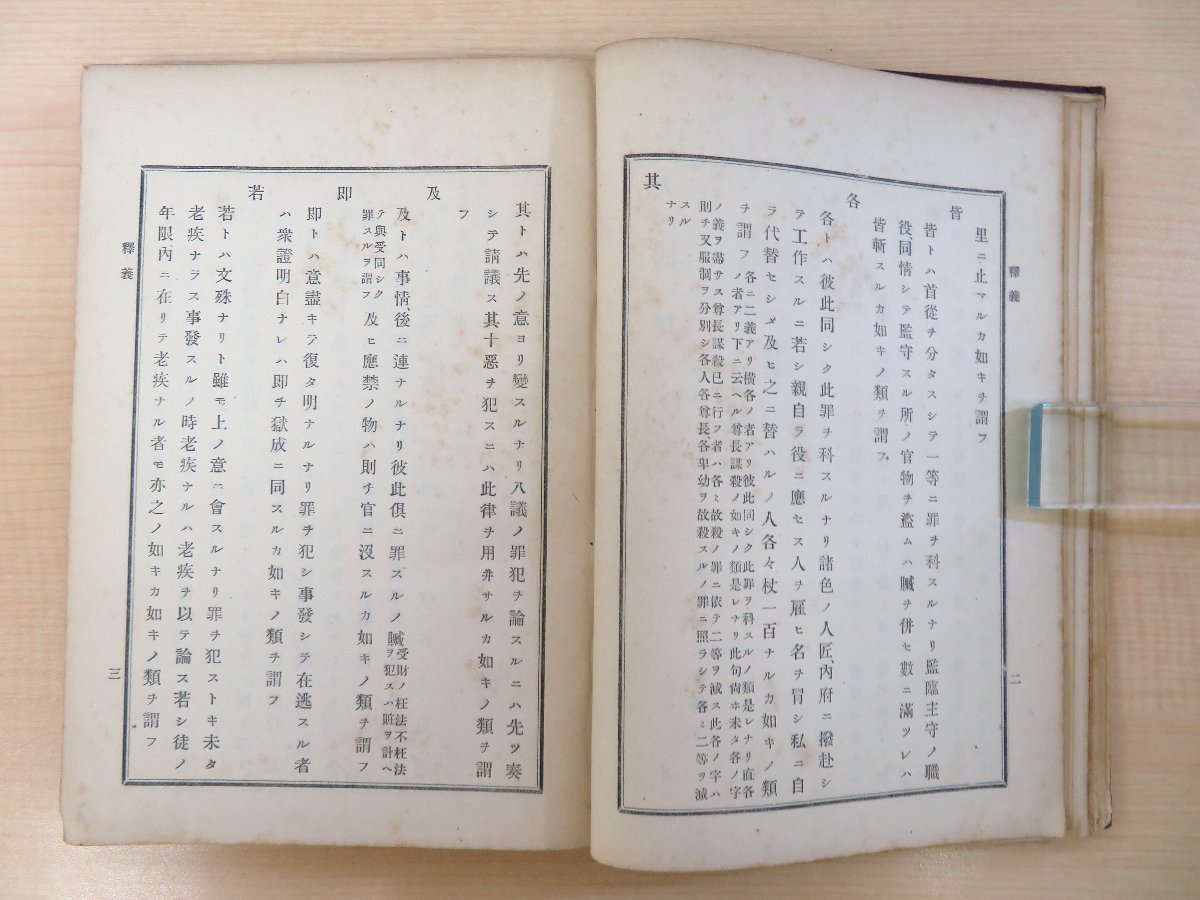 釋義
二
里ニ止マルカ如キヲ謂フ
皆
皆トハ首從ヲ分タスシテ一等ニ罪ヲ科スルナリ監臨主守ノ職
役、同情シテ監守スル所ノ官物ヲ盜ムハ贓ヲ併セ數ニ滿ツレハ
皆斬スルカ如キノ類ヲ謂フ
各
各トハ彼此同シク此罪ヲ科スルナリ諸色ノ人匠、內府ニ撥赴シ
テ工作スルニ若シ親自ラ役ニ應セス人ヲ雇ヒ名ヲ冒シ私ニ自
ラ代替セシメ及ヒ之ニ替ハルノ人各々杖一百ナルカ如キノ類
ヲ謂フ
各ニ二義アリ橫各ノ者アリ彼此同シク此罪ヲ科スルノ類是レナリ直各
ノ者アリ下ニ云ヘル尊長謀殺ノ如キノ類是レナリ此句尙ホ未タ各ノ字
ノ義ヲ盡サス尊長謀殺已ニ行フ者ハ各ミ故殺ノ罪ニ依テ二等ヲ減ス此各ノ字ハ
則チ又服制ヲ分別シ各人各尊長、各卑幼ヲ故殺スルノ罪ニ照ラシテ各ミ二等ヲ減
スル
ナリ
其
其トハ先ノ意ヨリ變スルナリ八議ノ罪犯ヲ論スルニハ先ツ奏
シテ請議ス其十惡ヲ犯スニハ此律ヲ用ヰサルカ如キノ類ヲ謂
フ
及
及トハ事情、後ニ連ナルナリ彼此俱ニ罪スルノ贓
受財ノ枉法不枉法
ヲ犯スハ賍ヲ計ヘ
テ與受同シク
罪スルヲ謂フ
及ヒ應禁ノ物ハ則チ官ニ沒スルカ如キノ類ヲ謂フ
即
即トハ意盡キテ復タ明ナルナリ罪ヲ犯シ事發シテ在逃スル者
ハ衆證明白ナレハ即チ獄成ニ同スルカ如キノ類ヲ謂フ
若
若トハ文殊ナリト雖モ上ノ意ニ會スルナリ罪ヲ犯ストキ未タ
老疾ナラス事發スルノ時老疾ナルハ老疾ヲ以テ論ス若シ徒ノ
年限內ニ在リテ老疾ナル者モ亦之ノ如キカ如キノ類ヲ謂フ
釋義
三